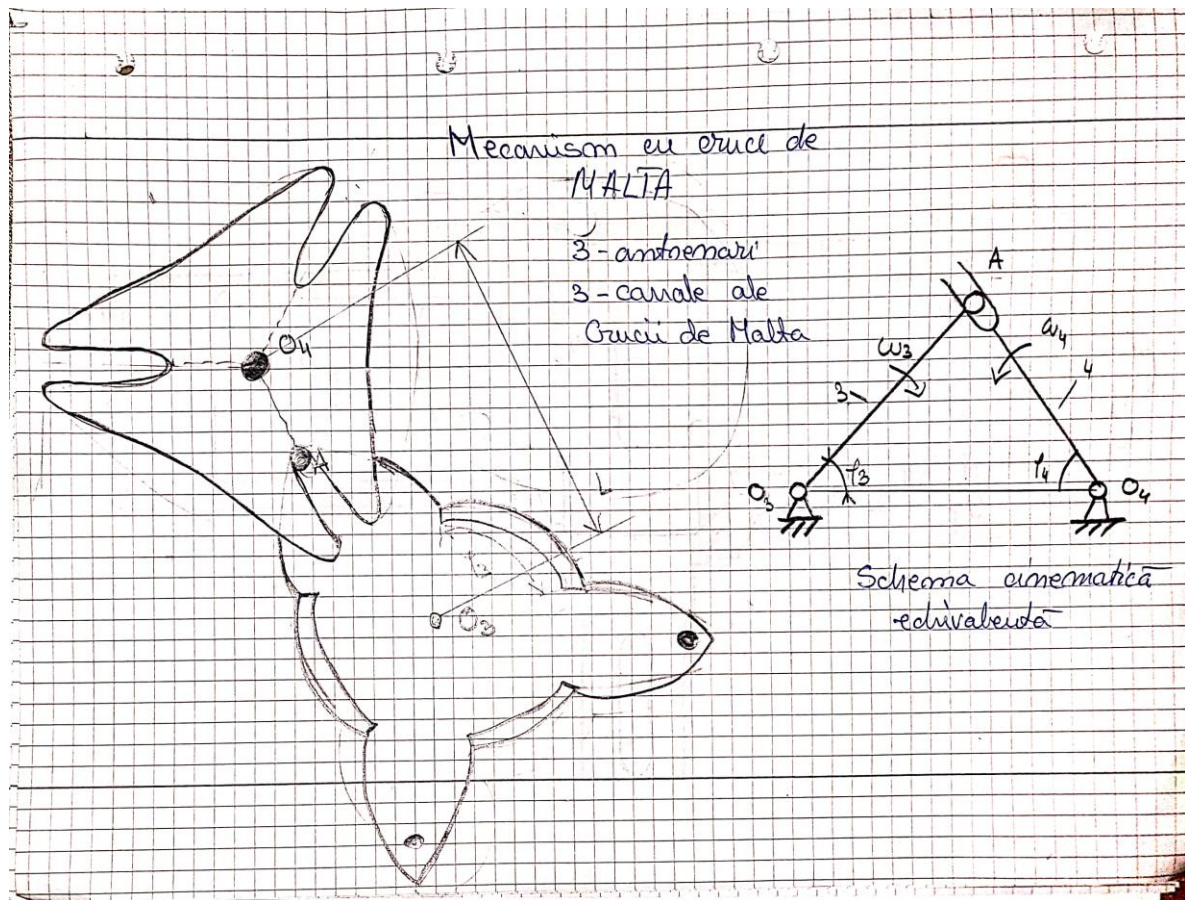 Mecanism cu cruce de
MALTA
3-antrenari
3-canale ale
Crucii de Malta
O4
A
L
O3
A
ω3
ω4
3
4
φ3
φ4
O3
O4
Schema cinematică
echivalentă